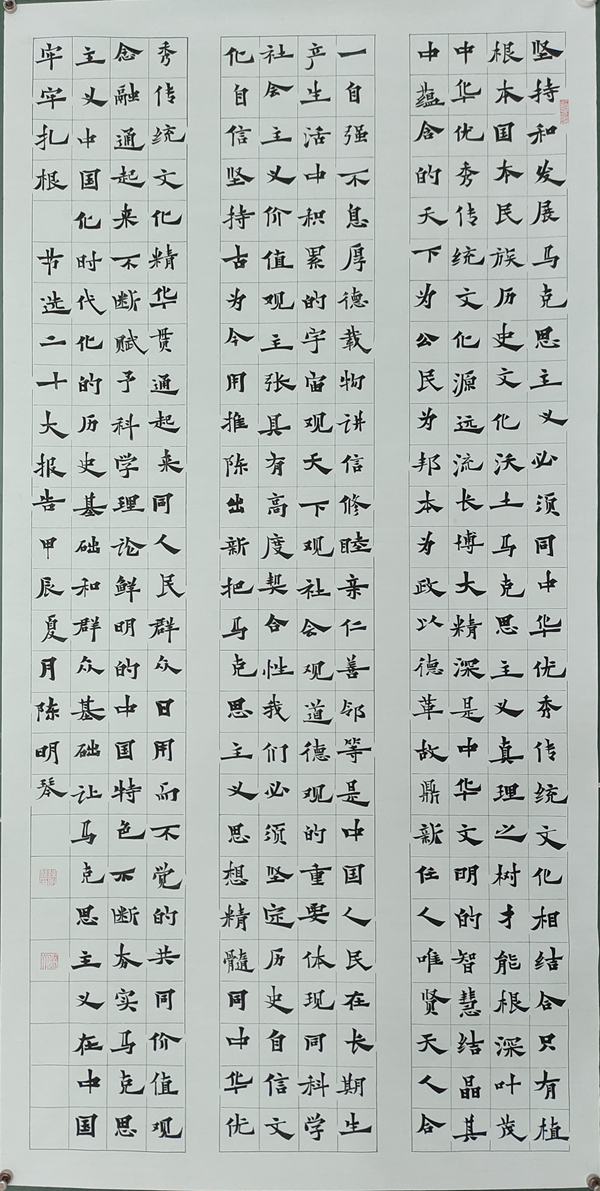 坚持和发展马克思主义必须同中华优秀传统文化相结合只有植
根本国本民族历史文化沃土马克思主义真理之树才能根深叶茂
中华优秀传统文化源远流长博大精深是中华文明的智慧结晶其
中蕴含的天下为公民为邦本为政以德革故鼎新任人唯贤天人合
一自强不息厚德载物讲信修睦亲仁善邻等是中国人民在长期生
产生活中积累的宇宙观天下观社会观道德观的重要体现同科学
社会主义价值观主张具有高度契合性我们必须坚定历史自信文
化自信坚持古为今用推陈出新把马克思主义思想精髓同中华优
秀传统文化精华贯通起来同人民群众日用而不觉的共同价值观
念融通起来不断赋予科学理论鲜明的中国特色不断夯实马克思
主义中国化时代化的历史基础和群众基础让马克思主义在中国
牢牢扎根 节选二十大报告甲辰夏月陈明琴